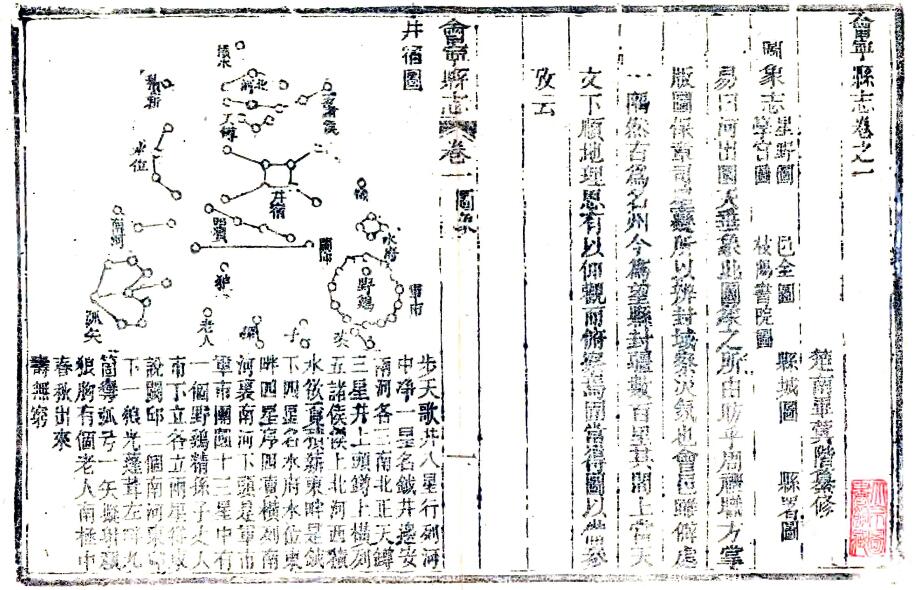 會寧縣志卷之一
楚南畢莢階纂修
圖象志
星野圖 邑全圖 縣城圖 縣署圖
學宮圖 枝陽書院圖
易曰河出圖天垂象此圖象之所由昉乎周禮職方掌
版圖保章司星變所以辨封域察次氛也會邑雖僻處
一隅然古為名州今為望縣封疆數百里其間上當天
文下順地理思有以仰觀而俯察焉固當得圖以備參
攷云
會寧縣志 卷一 圖象 一
井宿圖
積水
北河
五諸侯
積薪
天罇
水位
井宿
鉞
南河
四瀆
闕邱
水府
狼
野鷄
軍市
弧矢
老人
孫
子
丈
步天歌井八星行列河
中凈一星名鉞井邊安
兩河各三南北正天罇
三星井上頭罇上橫列
五諸侯侯上北河西積
水欲覓積薪東畔是鉞
下四星名水府水位東
畔四星序四瀆橫列南
河裏南河下頭是軍市
軍市團圓十三星中有
一個野鷄精孫子丈人
市下立各立兩星從東
說闕邱二個南河東邱
下一狼光蓬茸左畔九
箇彎弧弓一矢擬射頑
狼胸有個老人南極中
春秋出來
壽無窮